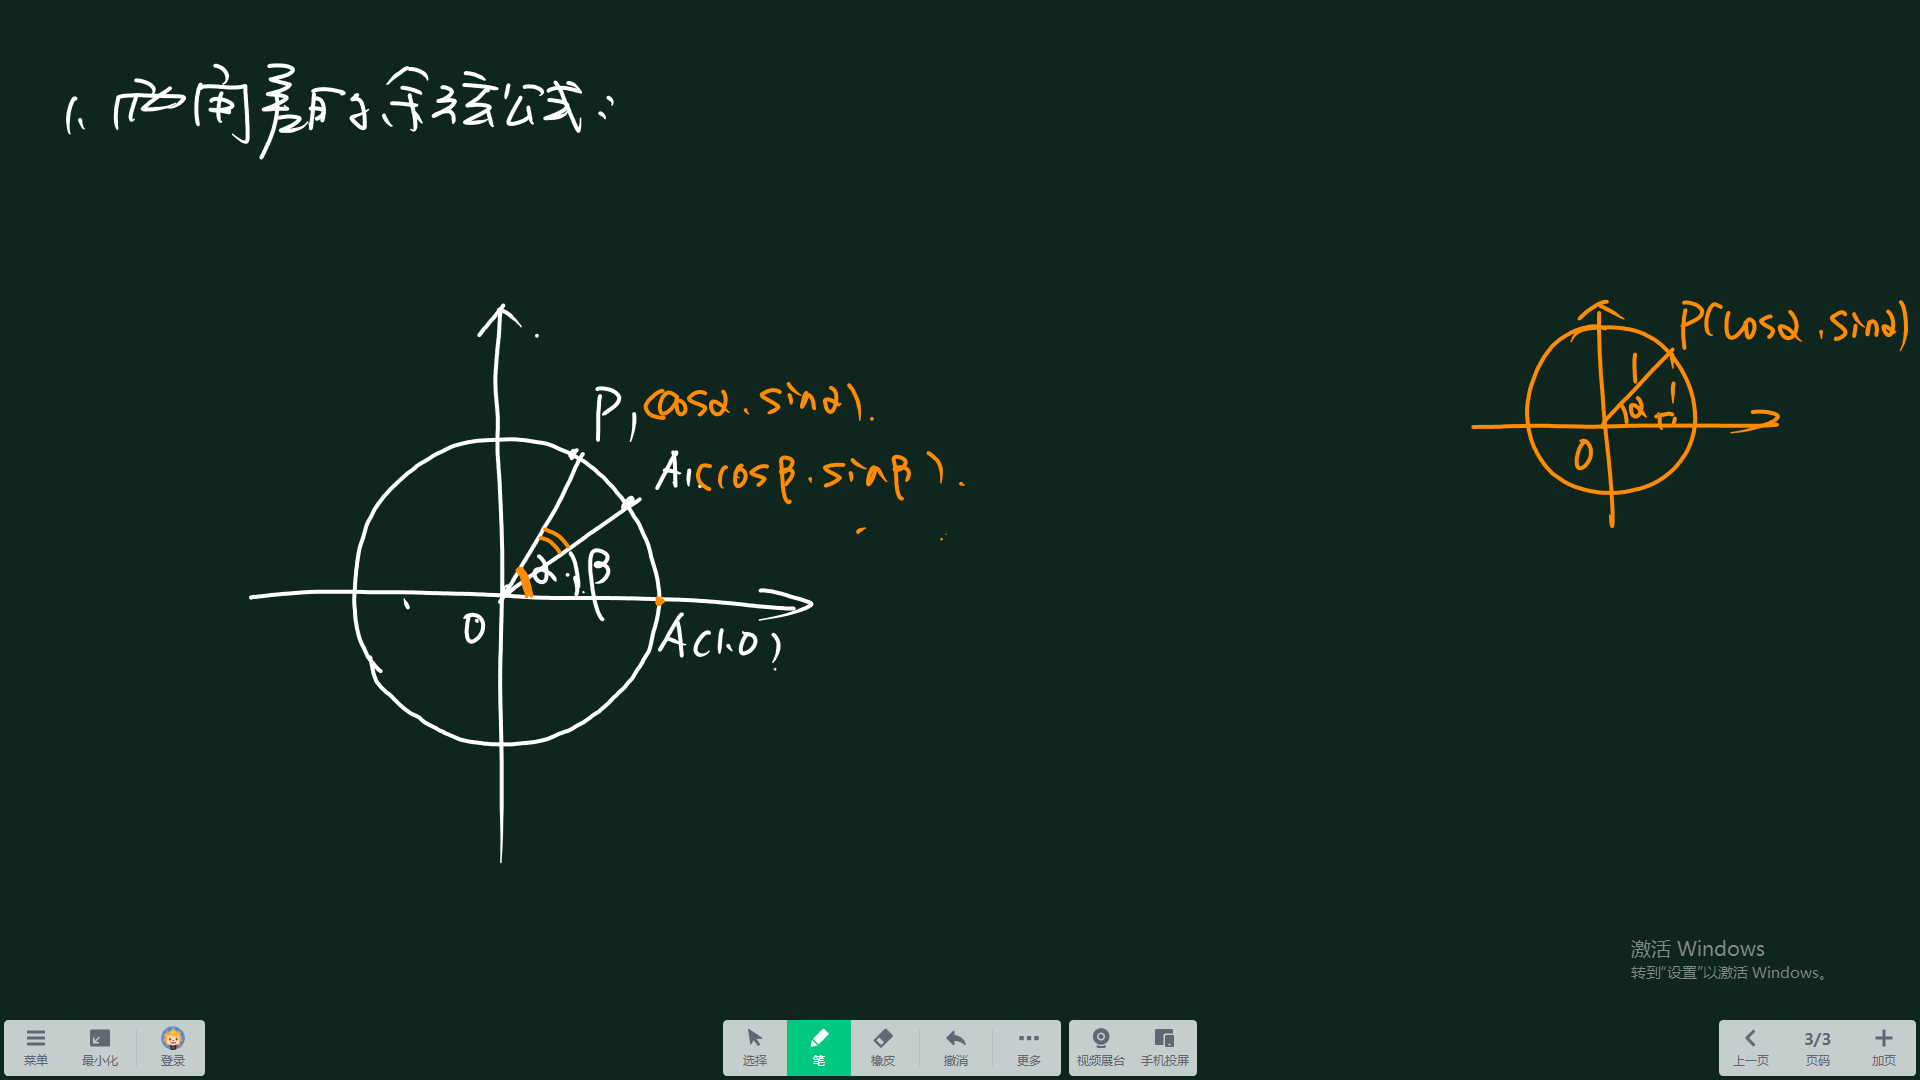 1. 两角差的余弦公式:
P(cosα, sinα)
P₁(cosα, sinα).
A₁(cosβ, sinβ).
1
α
α
β
O
O
A(1,0)
激活 Windows
转到“设置”以激活 Windows。
菜单 最小化 登录 选择 笔 橡皮 撤消 更多 视频展台 手机投屏 上一页 3/3 页码 加页